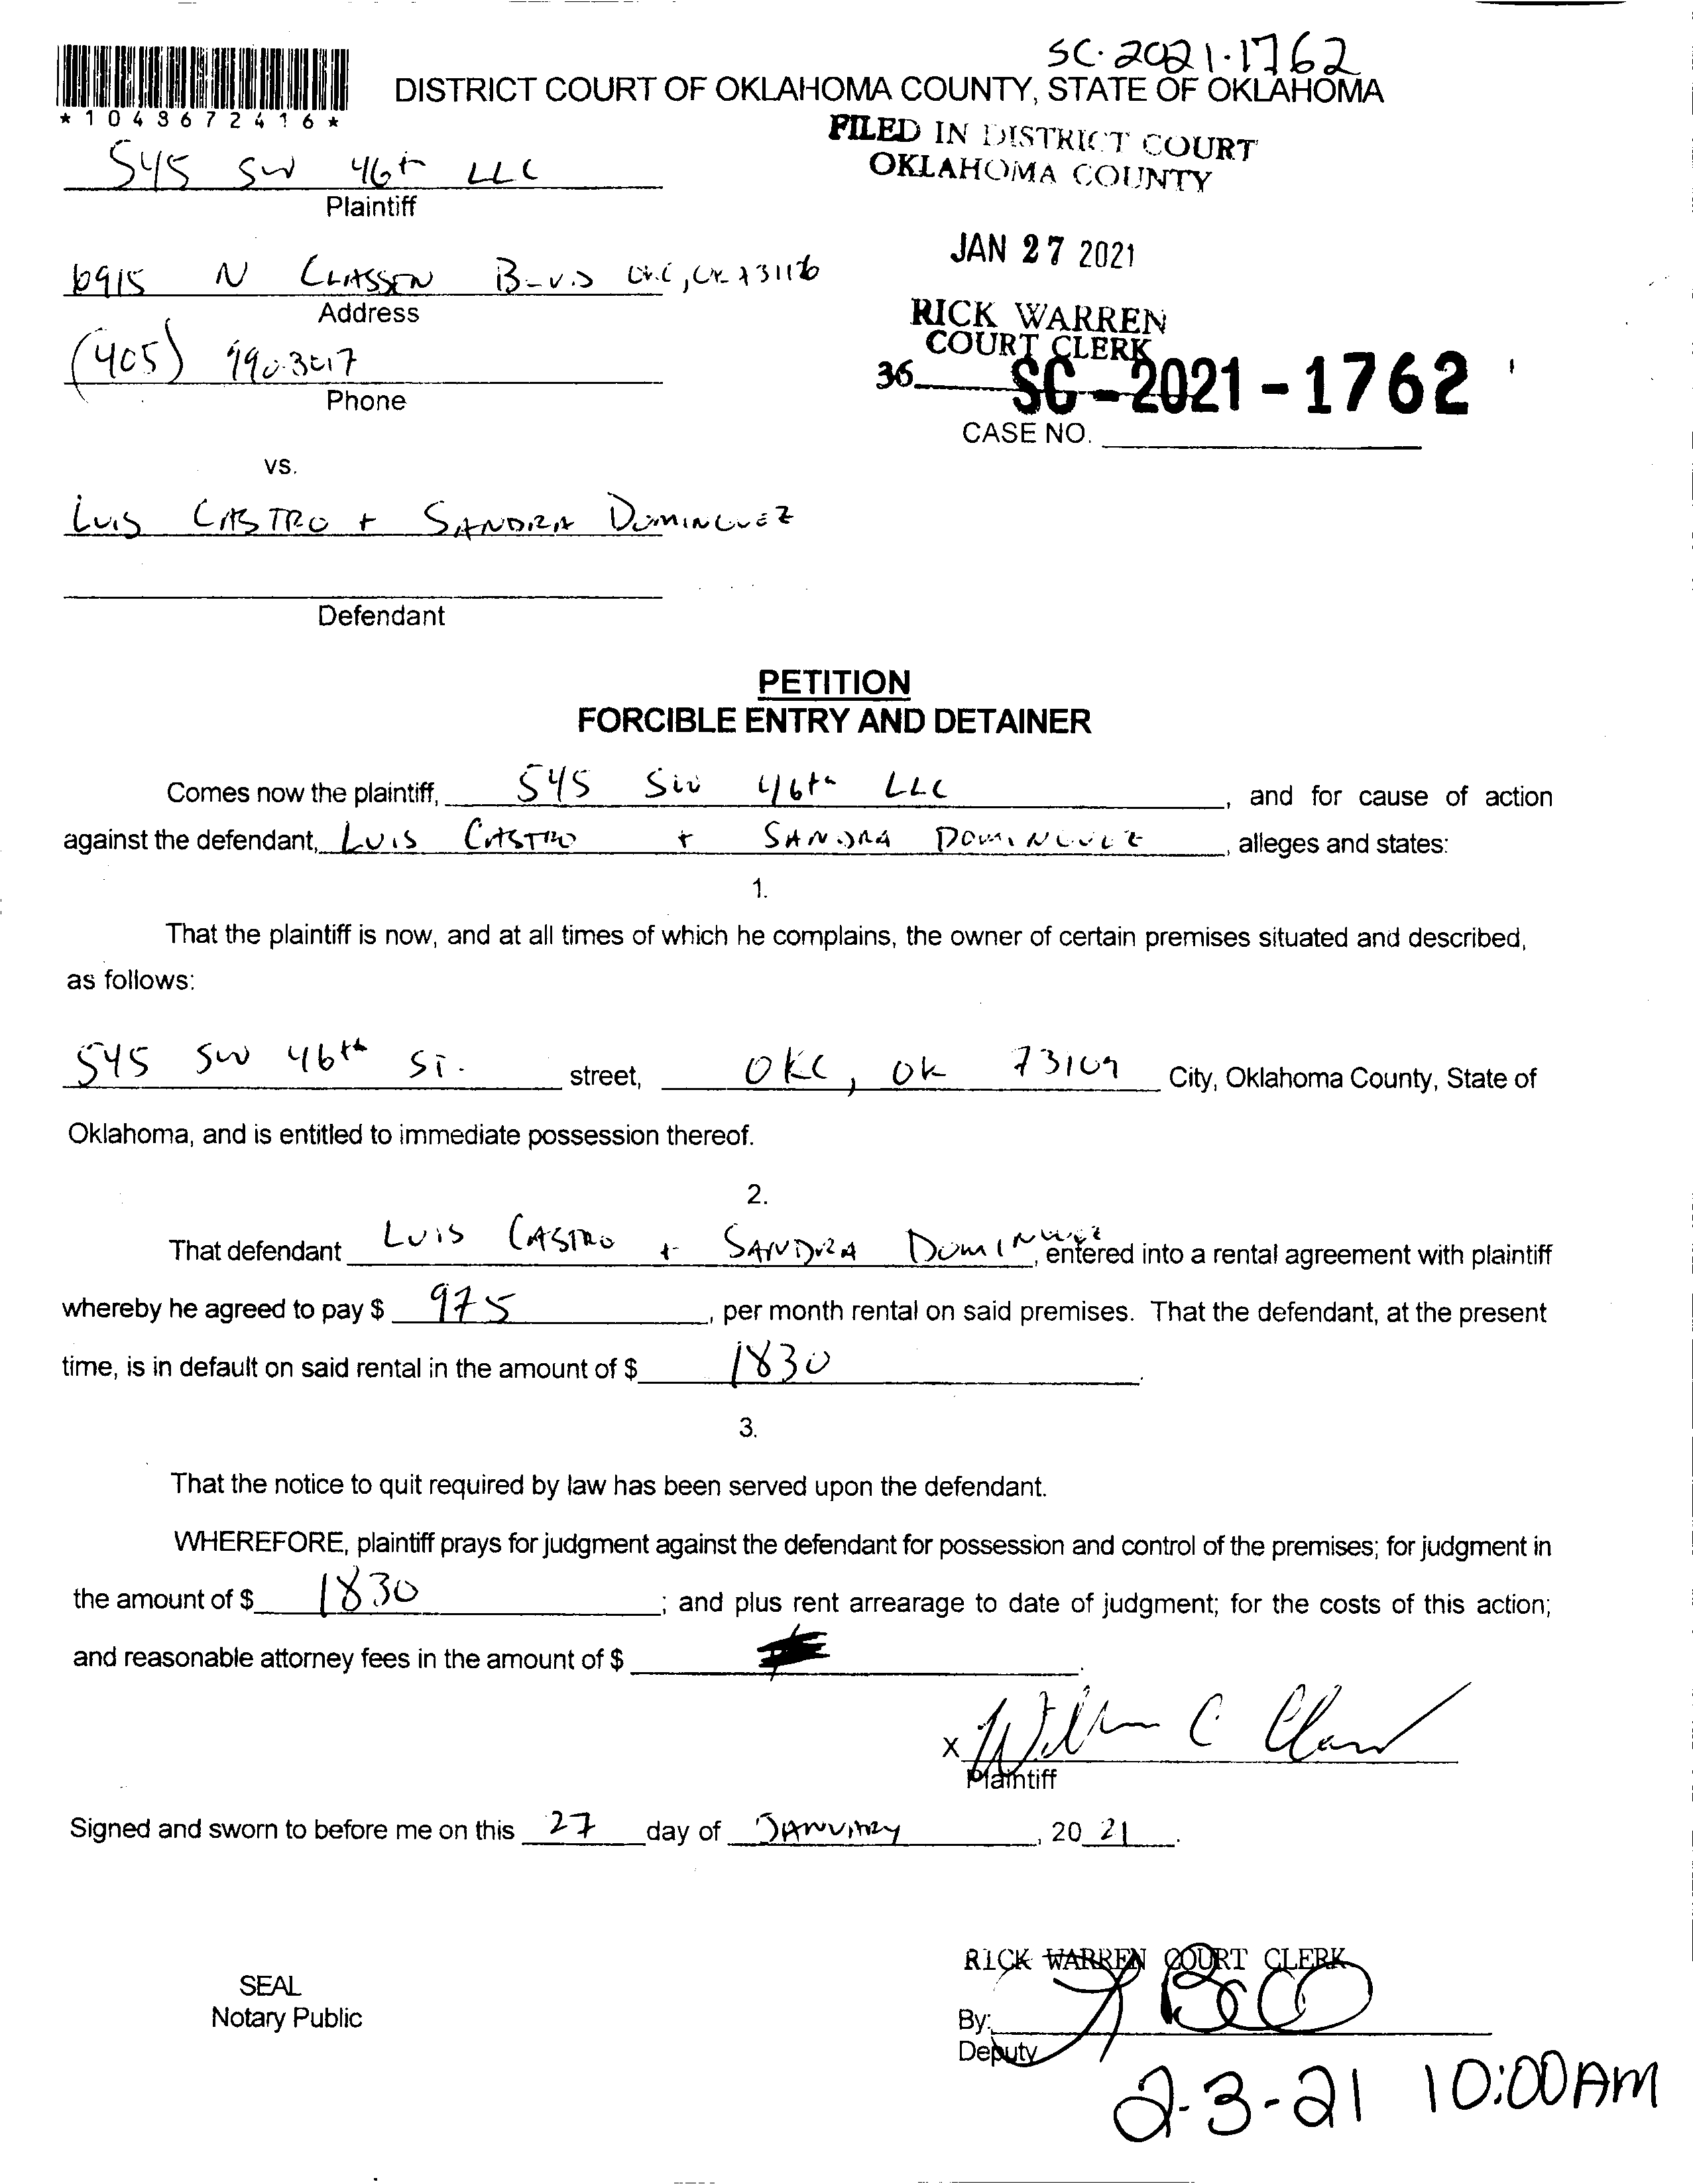 SC-2021-1762
DISTRICT COURT OF OKLAHOMA COUNTY, STATE OF OKLAHOMA
*1043672416*
FILED IN DISTRICT COURT
OKLAHOMA COUNTY
545 SW 46th LLC
Plaintiff
JAN 27 2021
6915 N CLASSEN BLVD OKC, OK 73116
Address
RICK WARREN
COURT CLERK
(405)
Phone
36
SC-2021-1762
CASE NO.
vs.
LUIS CASTRO + SANDRA DOMINGUEZ
Defendant
PETITION
FORCIBLE ENTRY AND DETAINER
Comes now the plaintiff, 545 SW 46th LLC, and for cause of action
against the defendant, LUIS CASTRO + SANDRA DOMINGUEZ, alleges and states:
1.
That the plaintiff is now, and at all times of which he complains, the owner of certain premises situated and described,
as follows:
545 SW 46th ST. street, OKC, OK 73109 City, Oklahoma County, State of
Oklahoma, and is entitled to immediate possession thereof.
2.
That defendant LUIS CASTRO + SANDRA DOMINGUEZ, entered into a rental agreement with plaintiff
whereby he agreed to pay $ 975, per month rental on said premises. That the defendant, at the present
time, is in default on said rental in the amount of $ 1830.
3.
That the notice to quit required by law has been served upon the defendant.
WHEREFORE, plaintiff prays for judgment against the defendant for possession and control of the premises; for judgment in
the amount of $ 1830; and plus rent arrearage to date of judgment; for the costs of this action;
and reasonable attorney fees in the amount of $.
X
Plaintiff
Signed and sworn to before me on this 27 day of JANUARY, 20 21.
RICK WARREN COURT CLERK
SEAL
Notary Public
By:
Deputy
2-3-21 10:00AM